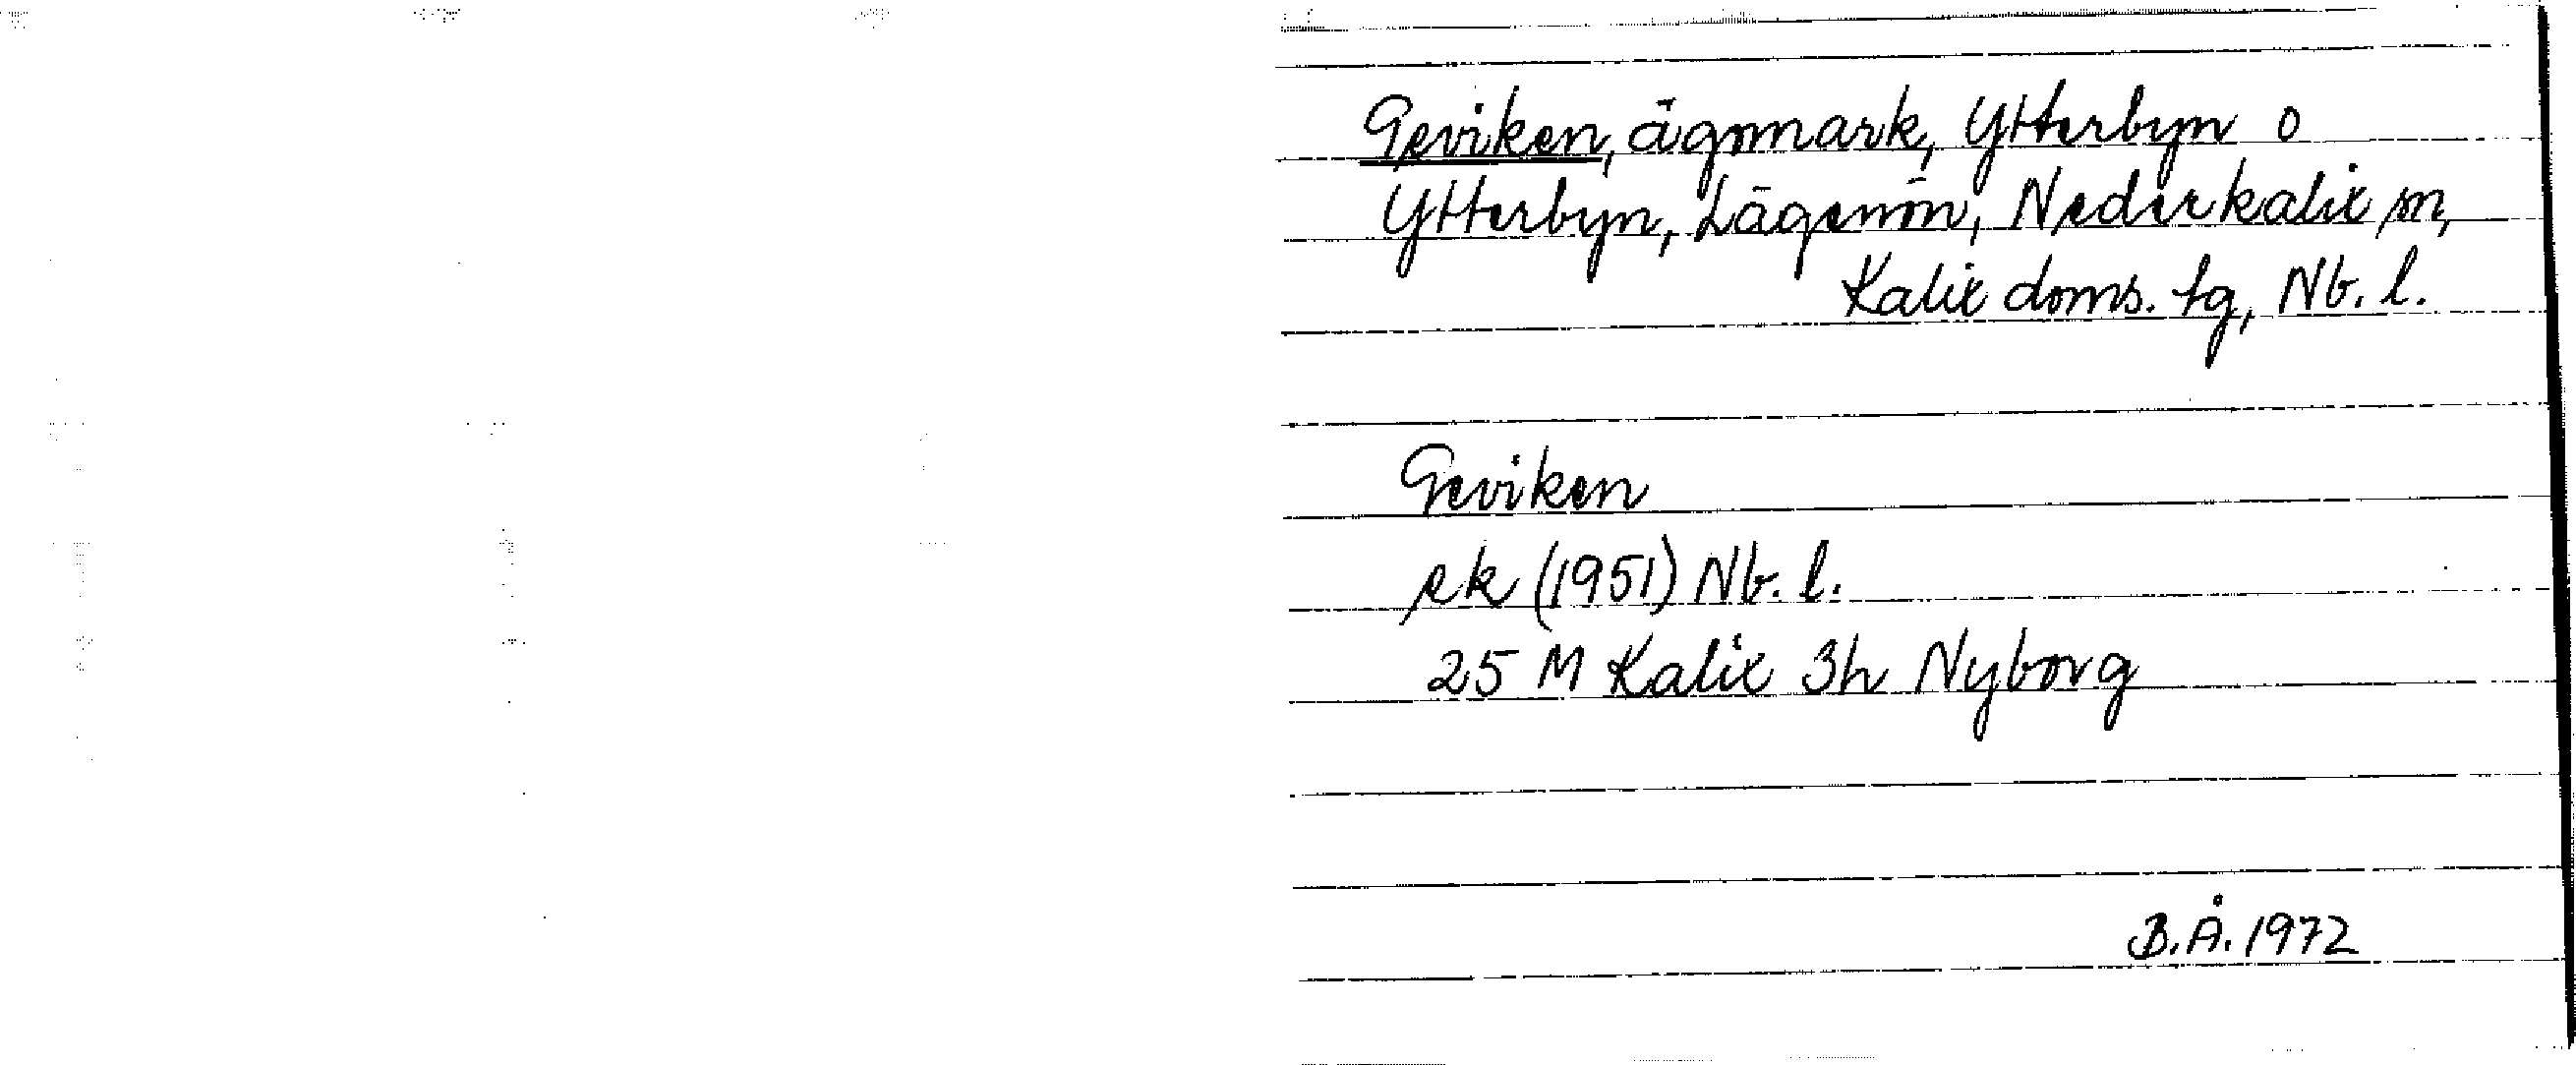 Geviken, ägomark, Ytterbyn o
Ytterbyn, Lägenön, Nederkalix sn,
Kalix doms. tg, Nb. l.
Geviken
ek (1951) Nb. l.
25 M Kalix 3h Nyborg
B.Å. 1972